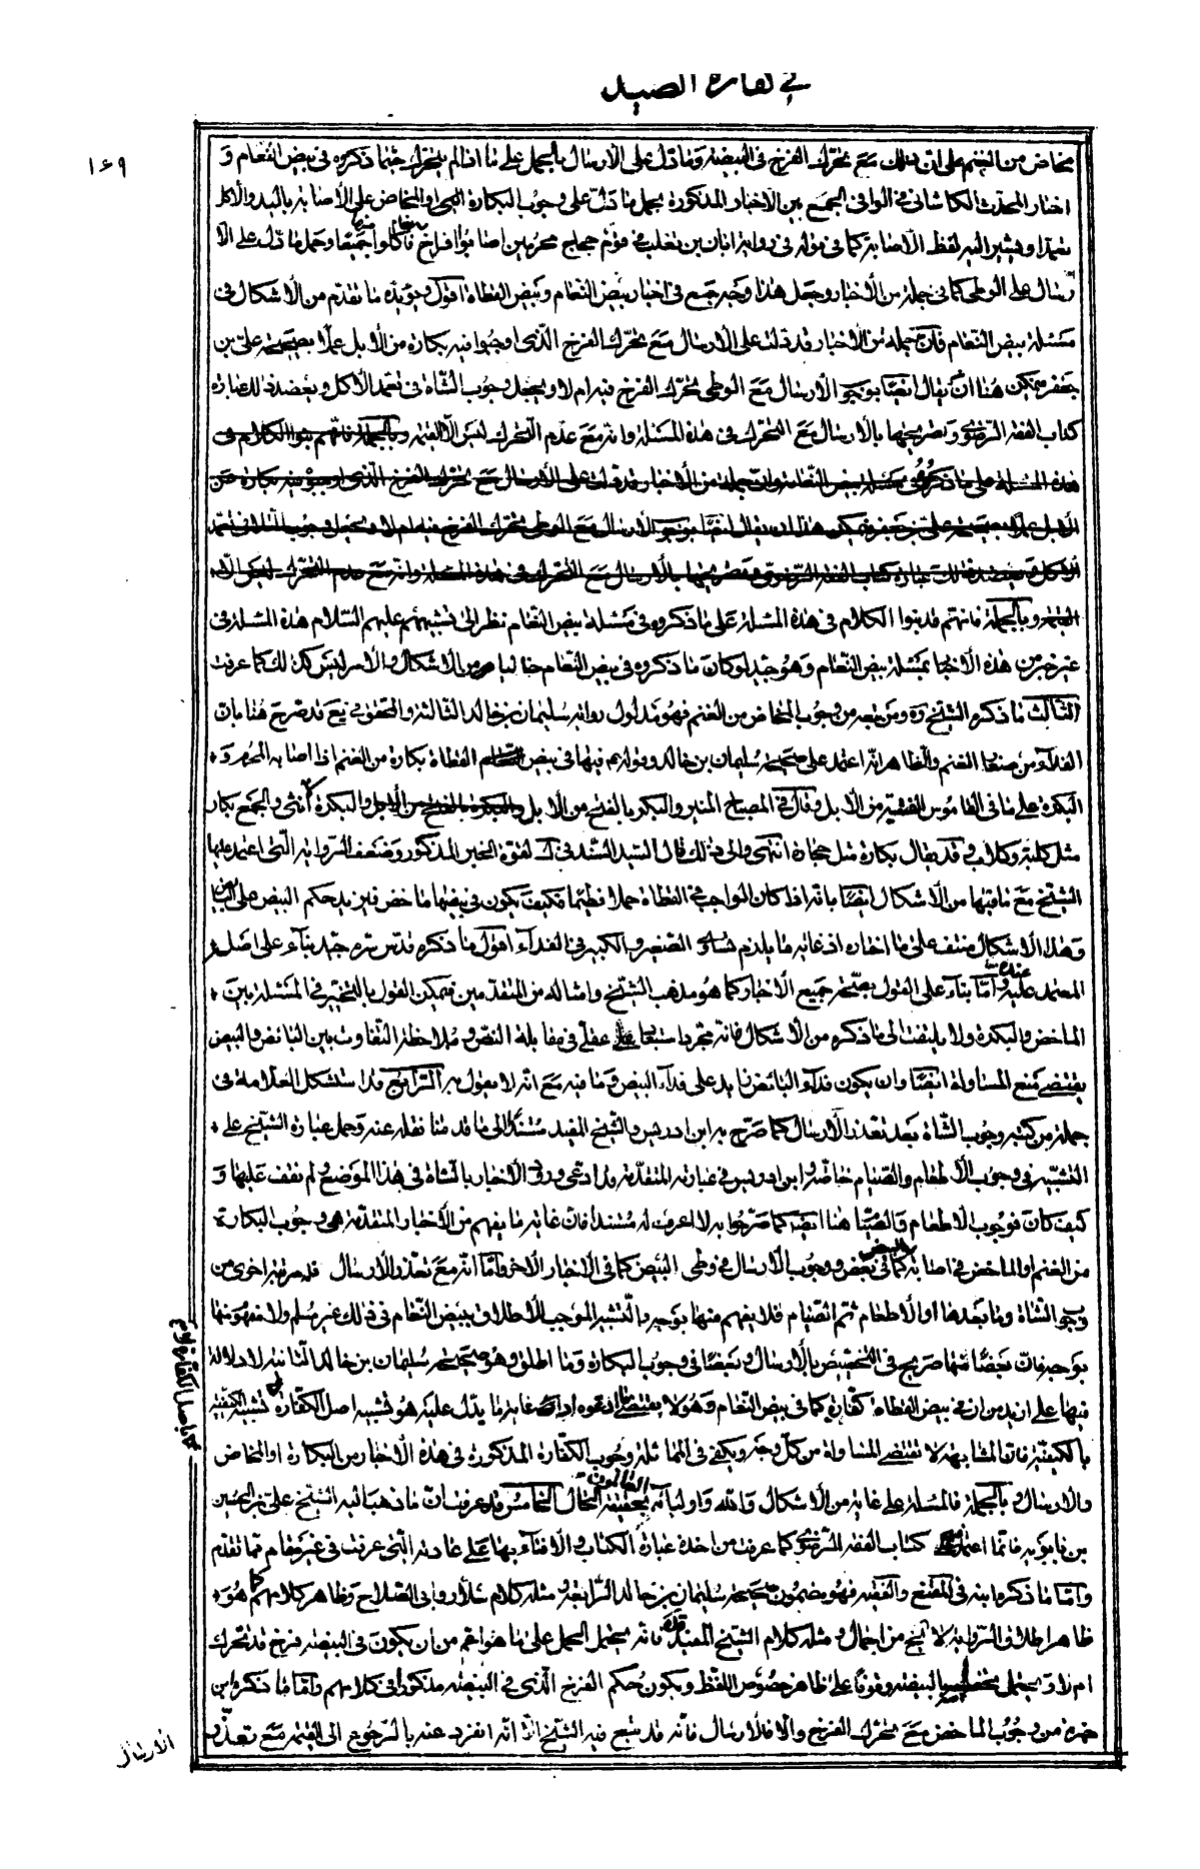 في كفارة الصيد
١٤٩
مخاض من الغنم على ان ذلك مع تحرك الفرخ في البيضة وما دل على الارسال بالحمل على ما اذا لم يتحرك حتما ذكروه في بيض النعام و
اختار المحدث الكاشاني في الوافي الجمع بين الاخبار المذكورة بحمل ما دل على وجوب البكارة او المخاض على الاصابة باليد والاكل
ويشير اليه لفظ الاصابة كما في قوله في رواية ابان بن تغلب في قوم حجاج محرمين اصابوا افراخ نعام فاكلوا جميعا وحمل ما دل على الا
رسال على الوطي كما في جملة من الاخبار وجعل هذا وجه جمع في اخبار بيض النعام وبيض القطاة اقول ويؤيده ما تقدم من الاشكال في
مسئلة بيض النعام فان جملة من الاخبار قد دلت على الارسال مع تحرك الفرخ الذي اوجبوا فيه بكارة من الابل عملا بصحيحة علي بن
جعفر فيمكن هنا ان يقال ايضا بوجوب الارسال مع الوطي تحرك الفرخ فيه ام لا ويحمل وجوب الشاة في تعمد الاكل ويعضد ذلك عبارة
كتاب الفقه الرضوي وتصريحها بالارسال مع التحرك في هذه المسئلة وانه مع عدم التحرك ليس الا القيمة وبالجملة فانهم بنوا الكلام في
هذه المسئلة على ما ذكروه في مسئلة بيض النعام وان جملة من الاخبار قد دلت على الارسال مع تحرك الفرخ الذي اوجبوا فيه بكارة من
الابل عملا بصحيحة علي بن جعفر فيمكن هنا ان يقال ايضا بوجوب الارسال مع الوطي تحرك الفرخ فيه ام لا ويحمل وجوب الشاة في تعمد
الاكل ويعضد ذلك عبارة كتاب الفقه الرضوي وتصريحها بالارسال مع التحرك في هذه المسئلة وانه مع عدم التحرك ليس الا
القيمة وبالجملة فانهم قد بنوا الكلام في هذه المسئلة على ما ذكروه في مسئلة بيض النعام نظرا الى تشبيههم عليهم السلام هذه المسئلة في
غير خبر من هذه الاخبار بمسئلة بيض النعام وهو جيد لو كان ما ذكروه في بيض النعام خاليا من الاشكال والامر ليس كذلك كما عرفت
الثالث ما ذكره الشيخ ره ومن تبعه من وجوب المخاض من الغنم فهو مدلول رواية سليمان بن خالد الثالثة والمحقق في يع قد صرح هنا بان
الفداء من صغار الغنم والظاهر انه اعتمد على صحيحة سليمان بن خالد وقولهم فيها في بيض القطاة بكارة من الغنم اذا اصابه المحرم و
البكرة على ما في القاموس الفتية من الابل وقال في المصباح المنير والبكر بالفتح من الابل والبكرة انثى والجمع بكار
مثل كلبة وكلاب وقد يقال بكارة مثل حجارة انتهى والى ذلك قال السيد السند في ك لقوة الخبر المذكور وضعف الرواية التي اعتمد عليها
الشيخ مع ما فيها من الاشكال ايضا بانه اذا كان الواجب في القطاة حملا فطيما فكيف يكون في بيضها ماخض فيزيد حكم البيض على البايض
وهذا الاشكال منتف على ما اختاره اذ غايته ما يلزم تساوي الصغير والكبير في الفداء اقول ما ذكره قدس سره جيد بناء على اصله
المعتمد عليه عنده واما بناء على القول بصحة جميع الاخبار كما هو مذهب الشيخ وامثاله من المتقدمين فيمكن القول بالتخيير في المسئلة بين
الماخض والبكرة ولا يلتفت الى ما ذكره من الاشكال فانه مجرد استبعاد عقلي في مقابلة النص وملاحظة التفاوت بين البائض والبيض
يقتضي منع المساواة ايضا وان يكون فداء البائض زايد على فداء البيض وما فيه مع انه لا يقول به الرابع قد استشكل العلامة في
جملة من كتبه وجوب الشاة بعد تعذر الارسال كما صرح به ابن ادريس والشيخ المفيد مستندا الى ما قدمنا نقله عنه وحمل عبارة الشيخ على
التشبيه في وجوب الاطعام والصيام خاصة وابن ادريس في عبارته المتقدمة قد ادعى ورود الاخبار بالشاة في هذا الموضع ولم نقف عليها و
كيف كان فوجوب الاطعام والصيام هنا ايضا كما صرحوا به لا اعرف له مستندا فان غاية ما يفهم من الاخبار المتقدمة هي وجوب البكارة
من الغنم او الماخض في اصابة البيض كما في بعض ووجوب الارسال في وطي البيض كما في الاخبار الاخر واما انه مع تعذر الارسال
وجوب الشاة وما بعدها او الاطعام ثم الصيام فلا يفهم منها بوجه والتشبيه الموجب للاطلاق ببيض النعام في ذلك غير مسلم ولا مفهوم منها
بوجه فان بعضا منها صريح في التخصيص بالارسال وبعضا في وجوب البكارة وما اطلق وهو صحيحة سليمان بن خالد الثانية لا دلالة
فيها على ازيد من ان في بيض القطاة كفارة كما في بيض النعام وهو لا يقتضي ما ادعوه اذ غاية ما يدل عليه هو تشبيه اصل الكفارة لا تشبيه الكيفية
باصل الكفارة لازم
بالكيفية فان المشابهة لا تقتضي المساواة من كل وجه ويكفي في المماثلة وجوب الكفارة المذكورة في هذه الاخبار من البكارة او المخاض
والارسال وبالجملة فالمسئلة على غاية من الاشكال والله واوليائه العالمون بحقيقة الحال الخامس قد عرفت ان ما ذهب اليه الشيخ علي بن الحسين
بن بابويه فانما اعتمد كتاب الفقه الرضوي كما عرفت من اخذه عبارة الكتاب والافتاء بها على عادته التي عرفت في غير مقام مما تقدم
واما ما ذكره ابنه في المقنع والفقيه فهو مضمون صحيحة سليمان بن خالد الرابعة ومثله كلام سلار وابي الصلاح وظاهر كلامهم كما هو
ظاهر اطلاق الرواية لا يخ من اجمال ومثله كلام الشيخ المفيد فانه يحتمل الحمل على ما هو اعم من ان يكون في البيضة فرخ قد تحرك
ام لا ويحتمل بالبيضة وقوفا على ظاهر خصوص اللفظ ويكون حكم الفرخ الذي في البيضة مذكورا في كلامهم واما ما ذكره ابن
حمزة من وجوب الماخض مع تحرك الفرخ والا فالارسال فانه قد تبع فيه الشيخ الا انه انفرد عنه بالرجوع الى القيمة مع تعذر
الارسال